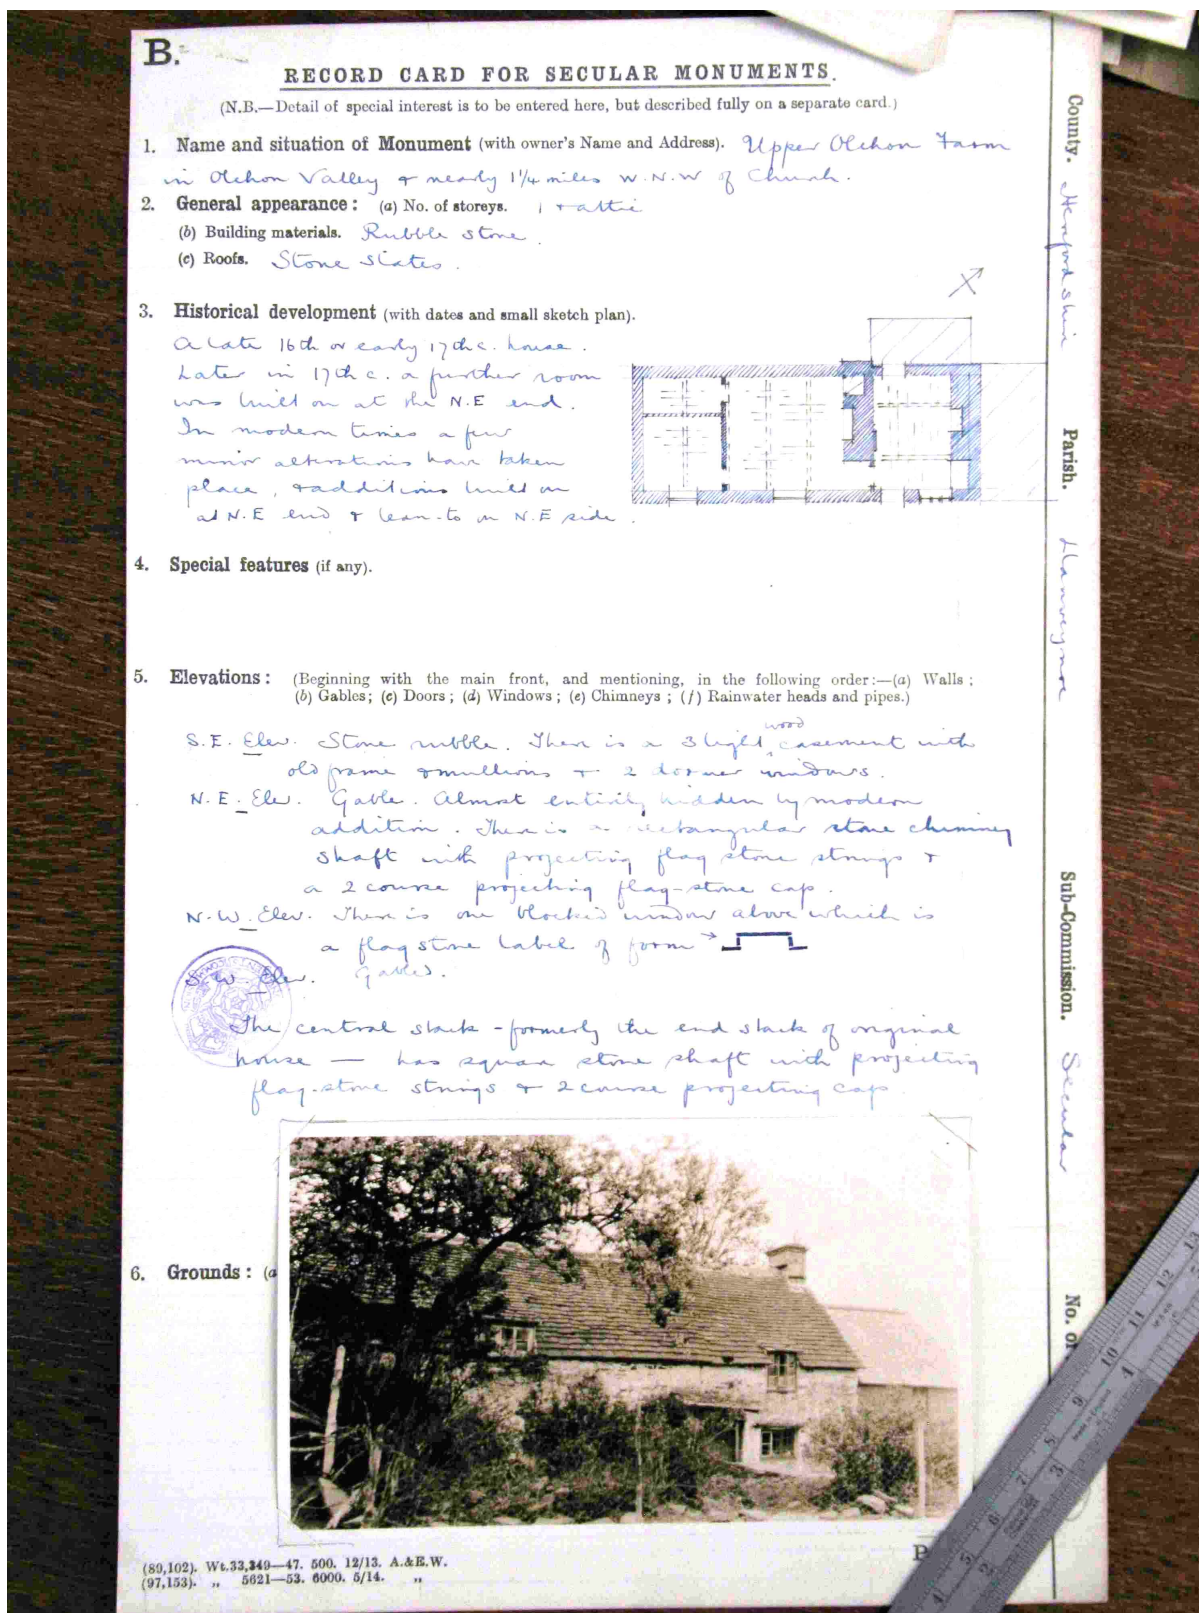 B.
RECORD CARD FOR SECULAR MONUMENTS.
(N.B.—Detail of special interest is to be entered here, but described fully on a separate card.)
1. Name and situation of Monument (with owner's Name and Address). Upper Olchon Farm
in Olchon Valley & nearly 1¼ miles W.N.W of Church.
2. General appearance: (a) No. of storeys. 1 + attic
(b) Building materials. Rubble stone.
(c) Roofs. Stone slates.
3. Historical development (with dates and small sketch plan).
A late 16th or early 17th c. house.
Later in 17th c. a further room
was built on at the N.E end.
In modern times a few
minor alterations have taken
place, & additions built on
at N.E end & lean-to on N.E side.
4. Special features (if any).
5. Elevations: (Beginning with the main front, and mentioning, in the following order:—(a) Walls;
(b) Gables; (c) Doors; (d) Windows; (e) Chimneys; (f) Rainwater heads and pipes.)
S.E. Elev. Stone rubble. There is a 3 light wood casement with
old frame & mullions & 2 dormer windows.
N.E. Elev. Gable. Almost entirely hidden by modern
addition. There is a rectangular stone chimney
shaft with projecting flag stone strings &
a 2 course projecting flag-stone cap.
N.W. Elev. There is one blocked window above which is
a flag stone label of form →
S.W. Elev. Gable.
The central stack - formerly the end stack of original
house — has square stone shaft with projecting
flag-stone strings & 2 course projecting cap.
6. Grounds: (a
(89,102). Wt.33,349—47. 500. 12/13. A.&E.W.
(97,153). „ 5621—53. 6000. 5/14. „
P
County. Herefordshire
Parish. Llanveynoe
Sub-Commission. Secular
No. of